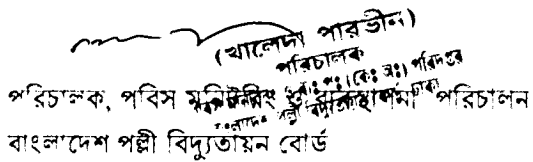 (খালেদা পারভীন)
পরিচালক
পরিচালক, পবিস মনিটরিং ও ব্যবস্থাপনা পরিচালন
বাংলাদেশ পল্লী বিদ্যুতায়ন বোর্ড